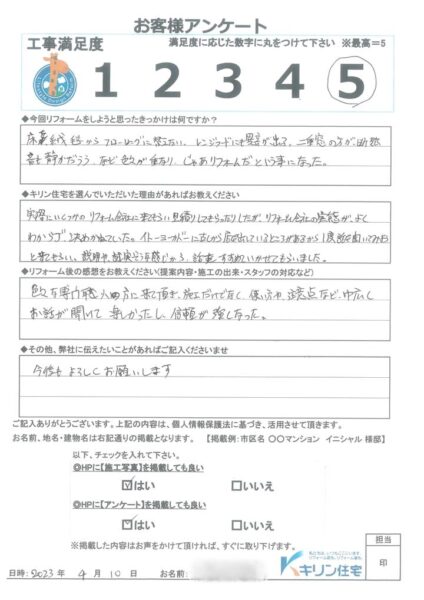 お客様アンケート
工事満足度
満足度に応じた数字に丸をつけて下さい ※最高=5
1 2 3 4 5
◆今回リフォームをしようと思ったきっかけは何ですか?
から フローリングに替えたい。レンジフードにも異音が出る。二重窓の方が断然
音も静かだろう など色々重なり、じゃあリフォームだという事になった。
◆キリン住宅を選んでいただいた理由があればお教えください
実際にいくつかのリフォーム会社に来てもらい見積りしてもらったりしたが、リフォーム会社の実態が、よく
わからず、決めかねていた。イトーヨーカドーに
と来てもらい、説明や
◆リフォーム後の感想をお教えください(提案内容・施工の出来・スタッフの対応など)
色々専門職人の方に来て頂き、施工だけでなく、使い方や注意点など、幅広く
お話が聞けて 楽しかったし、信頼が強くなった。
◆その他、弊社に伝えたいことがあればご記入くださいませ
今後も よろしくお願いします
ご記入ありがとうございます。上記の内容は、個人情報保護法に基づき、活用させて頂きます。
お名前、地名・建物名は右記通りの掲載となります。 【掲載例:市区名 〇〇マンション イニシャル 様邸】
以下、チェックを入れて下さい。
◎HPに【施工写真】を掲載しても良い
☑はい □いいえ
◎HPに【アンケート】を掲載しても良い
☑はい □いいえ
※掲載した内容はお声をかけて頂ければ、すぐに取り下げます。
キリン住宅
担当
印
日時:2023 年 4 月 10 日 お名前: